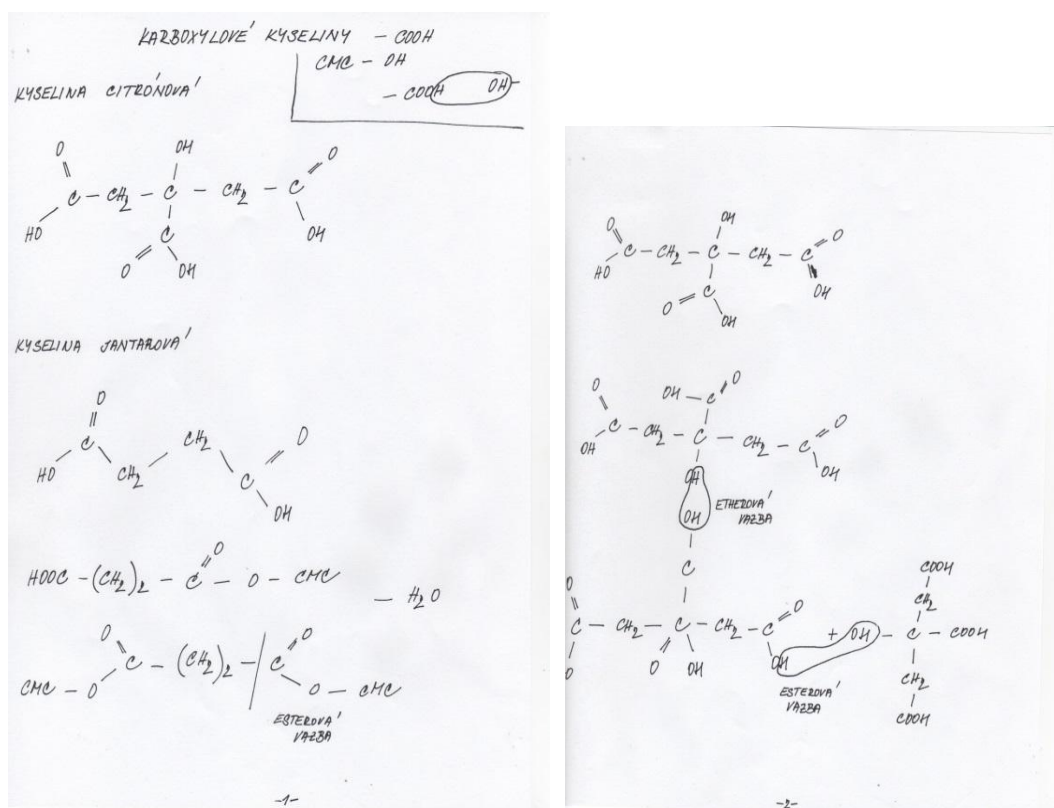 KARBOXYLOVÉ KYSELINY – COOH
CMC – OH
– COOH OH –
KYSELINA CITRÓNOVÁ
O OH O
C – CH2 – C – CH2 – C
HO C OH
O OH
KYSELINA JANTAROVÁ
O
CH2 O
C
HO CH2 C
OH
O
HOOC – (CH2)2 – C – O – CMC
– H2O
O O
C – (CH2)2 – C
CMC – O O – CMC
ESTEROVÁ
VAZBA
-1-
OH
O O
C – CH2 – C – CH2 – C
HO C OH
O OH
OH – C O
O O
C – CH2 – C – CH2 – C
OH OH OH
ETHEROVÁ
VAZBA
OH
C
COOH
CH2
O O
C – CH2 – C – CH2 – C + OH – C – COOH
O O OH OH
CH2
ESTEROVÁ
VAZBA
COOH
-2-